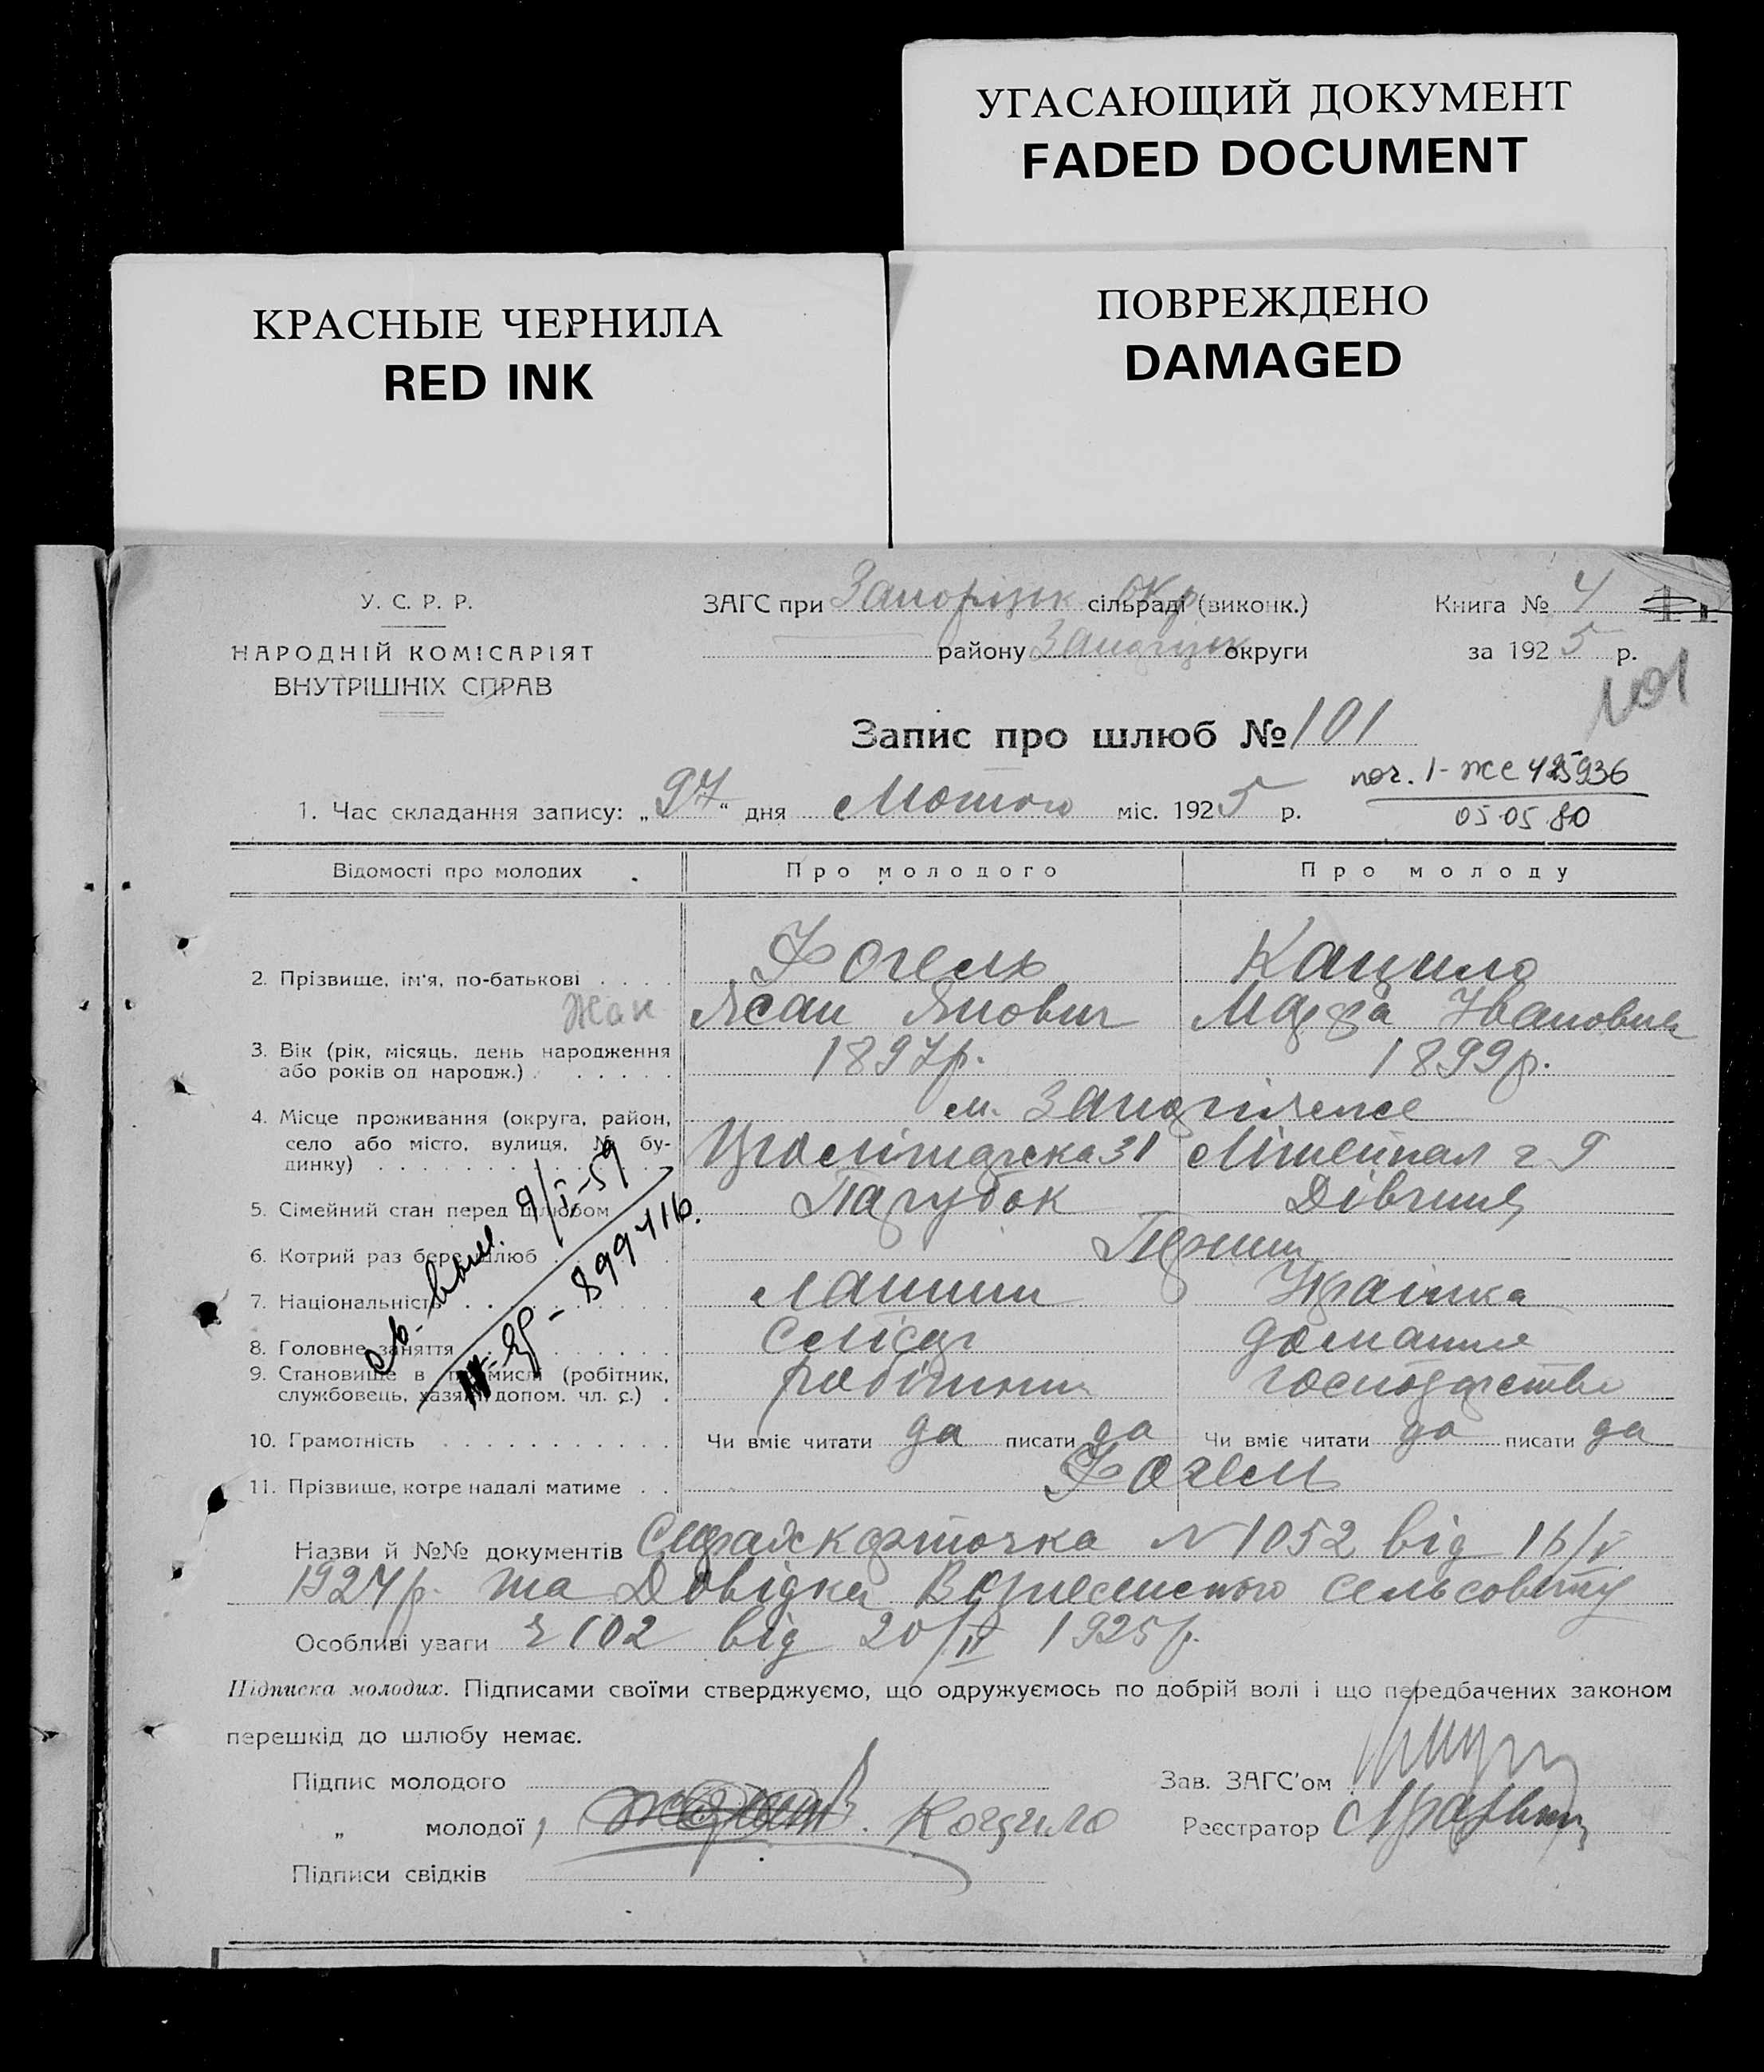 УГАСАЮЩИЙ ДОКУМЕНТ
FADED DOCUMENT
КРАСНЫЕ ЧЕРНИЛА
RED INK
ПОВРЕЖДЕНО
DAMAGED
У. С. Р. Р.
НАРОДНІЙ КОМІСАРІЯТ
ВНУТРІШНІХ СПРАВ
ЗАГС при Запорізьк окр. сільраді (виконк.)
району Запоріzьк округи
Книга № 4
за 1925 р.
101
Запис про шлюб № 101
05.05.80
1. Час складання запису: „27“ дня Лютого міс. 1925 р.
Відомості про молодих
Про молодого
Про молоду
2. Прізвище, ім'я, по-батькові . . . . Фогель Кацило
Жан Янович Марфа Івановна
3. Вік (рік, місяць, день народження
або років од народж.) . . . . . . 1897р. 1899р.
4. Місце проживання (округа, район,
село або місто, вулиця, № бу-
динку) . . . . . м. Запоріжжє
31 9
5. Сімейний стан перед шлюбом Парубок Дівчина
6. Котрий раз бере шлюб . . Перший
7. Національність . . . . Латиш Українка
8. Головне заняття . . . . Слюсар домашнє
9. Становище в промислі (робітник,
службовець, хазяїн, допом. чл. с.) . робітник господарство
10. Грамотність . . . . . Чи вміє читати да писати да Чи вміє читати да писати да
11. Прізвище, котре надалі матиме . . Фогель
Назви й №№ документів N 1052 від 16/V
1924р. та Довідка Вознесенского сельсовету
Особливі уваги 102 від 20/II 1925р.
Підписка молодих. Підписами своїми стверджуємо, що одружуємось по добрій волі і що передбачених законом
перешкід до шлюбу немає.
Підпис молодого
Зав. ЗАГС'ом
„ молодої Кацило
Реєстратор
Підписи свідків